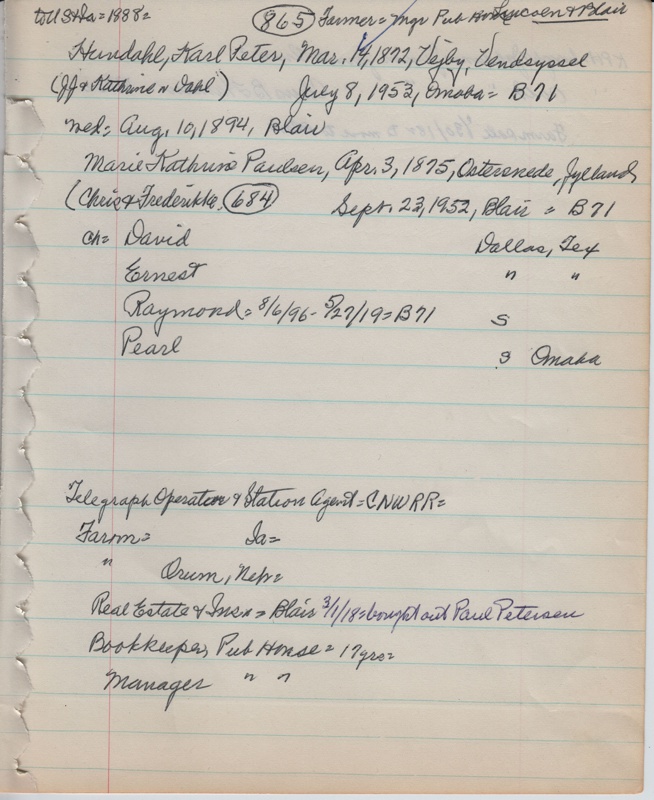 to U.S. + Ia = 1888 = 865 Farmer = mgr Pub House Lincoln & Blair
Hundahl, Karl Peter, Mar. 14, 1872, Vejby, Vendsyssel
(JJ & Kathrine n Dahl) July 8, 1953, Omaha = B 71
Wed = Aug. 10, 1894, Blair
Marie Kathrine Paulsen, Apr. 3, 1875, Ostersnede, Jylland
(Chris & Frederikke 684) Sept. 23, 1952, Blair = B 71
Ch = David Dallas, Tex
Ernest " "
Raymond = 8/6/96 - 5/27/19 = B71 S
Pearl S Omaha
Telegraph Operator & Station Agent = CNWRR =
Farm = Ia =
" Orum, Neb =
Real Estate & Insr = Blair 3/1/18 = bought out Paul Petersen
Bookkeeper, Pub House = 17 yrs =
Manager " "